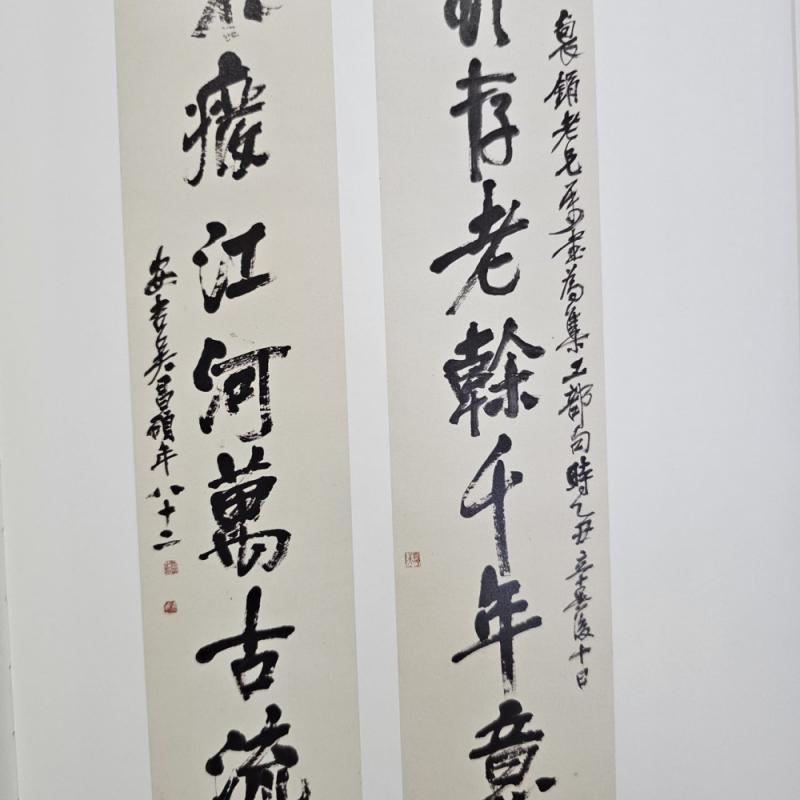 老兄屬書為集工部句時乙丑後十日
存老榦千年意
不廢江河萬古流
安吉吳昌碩年八十二